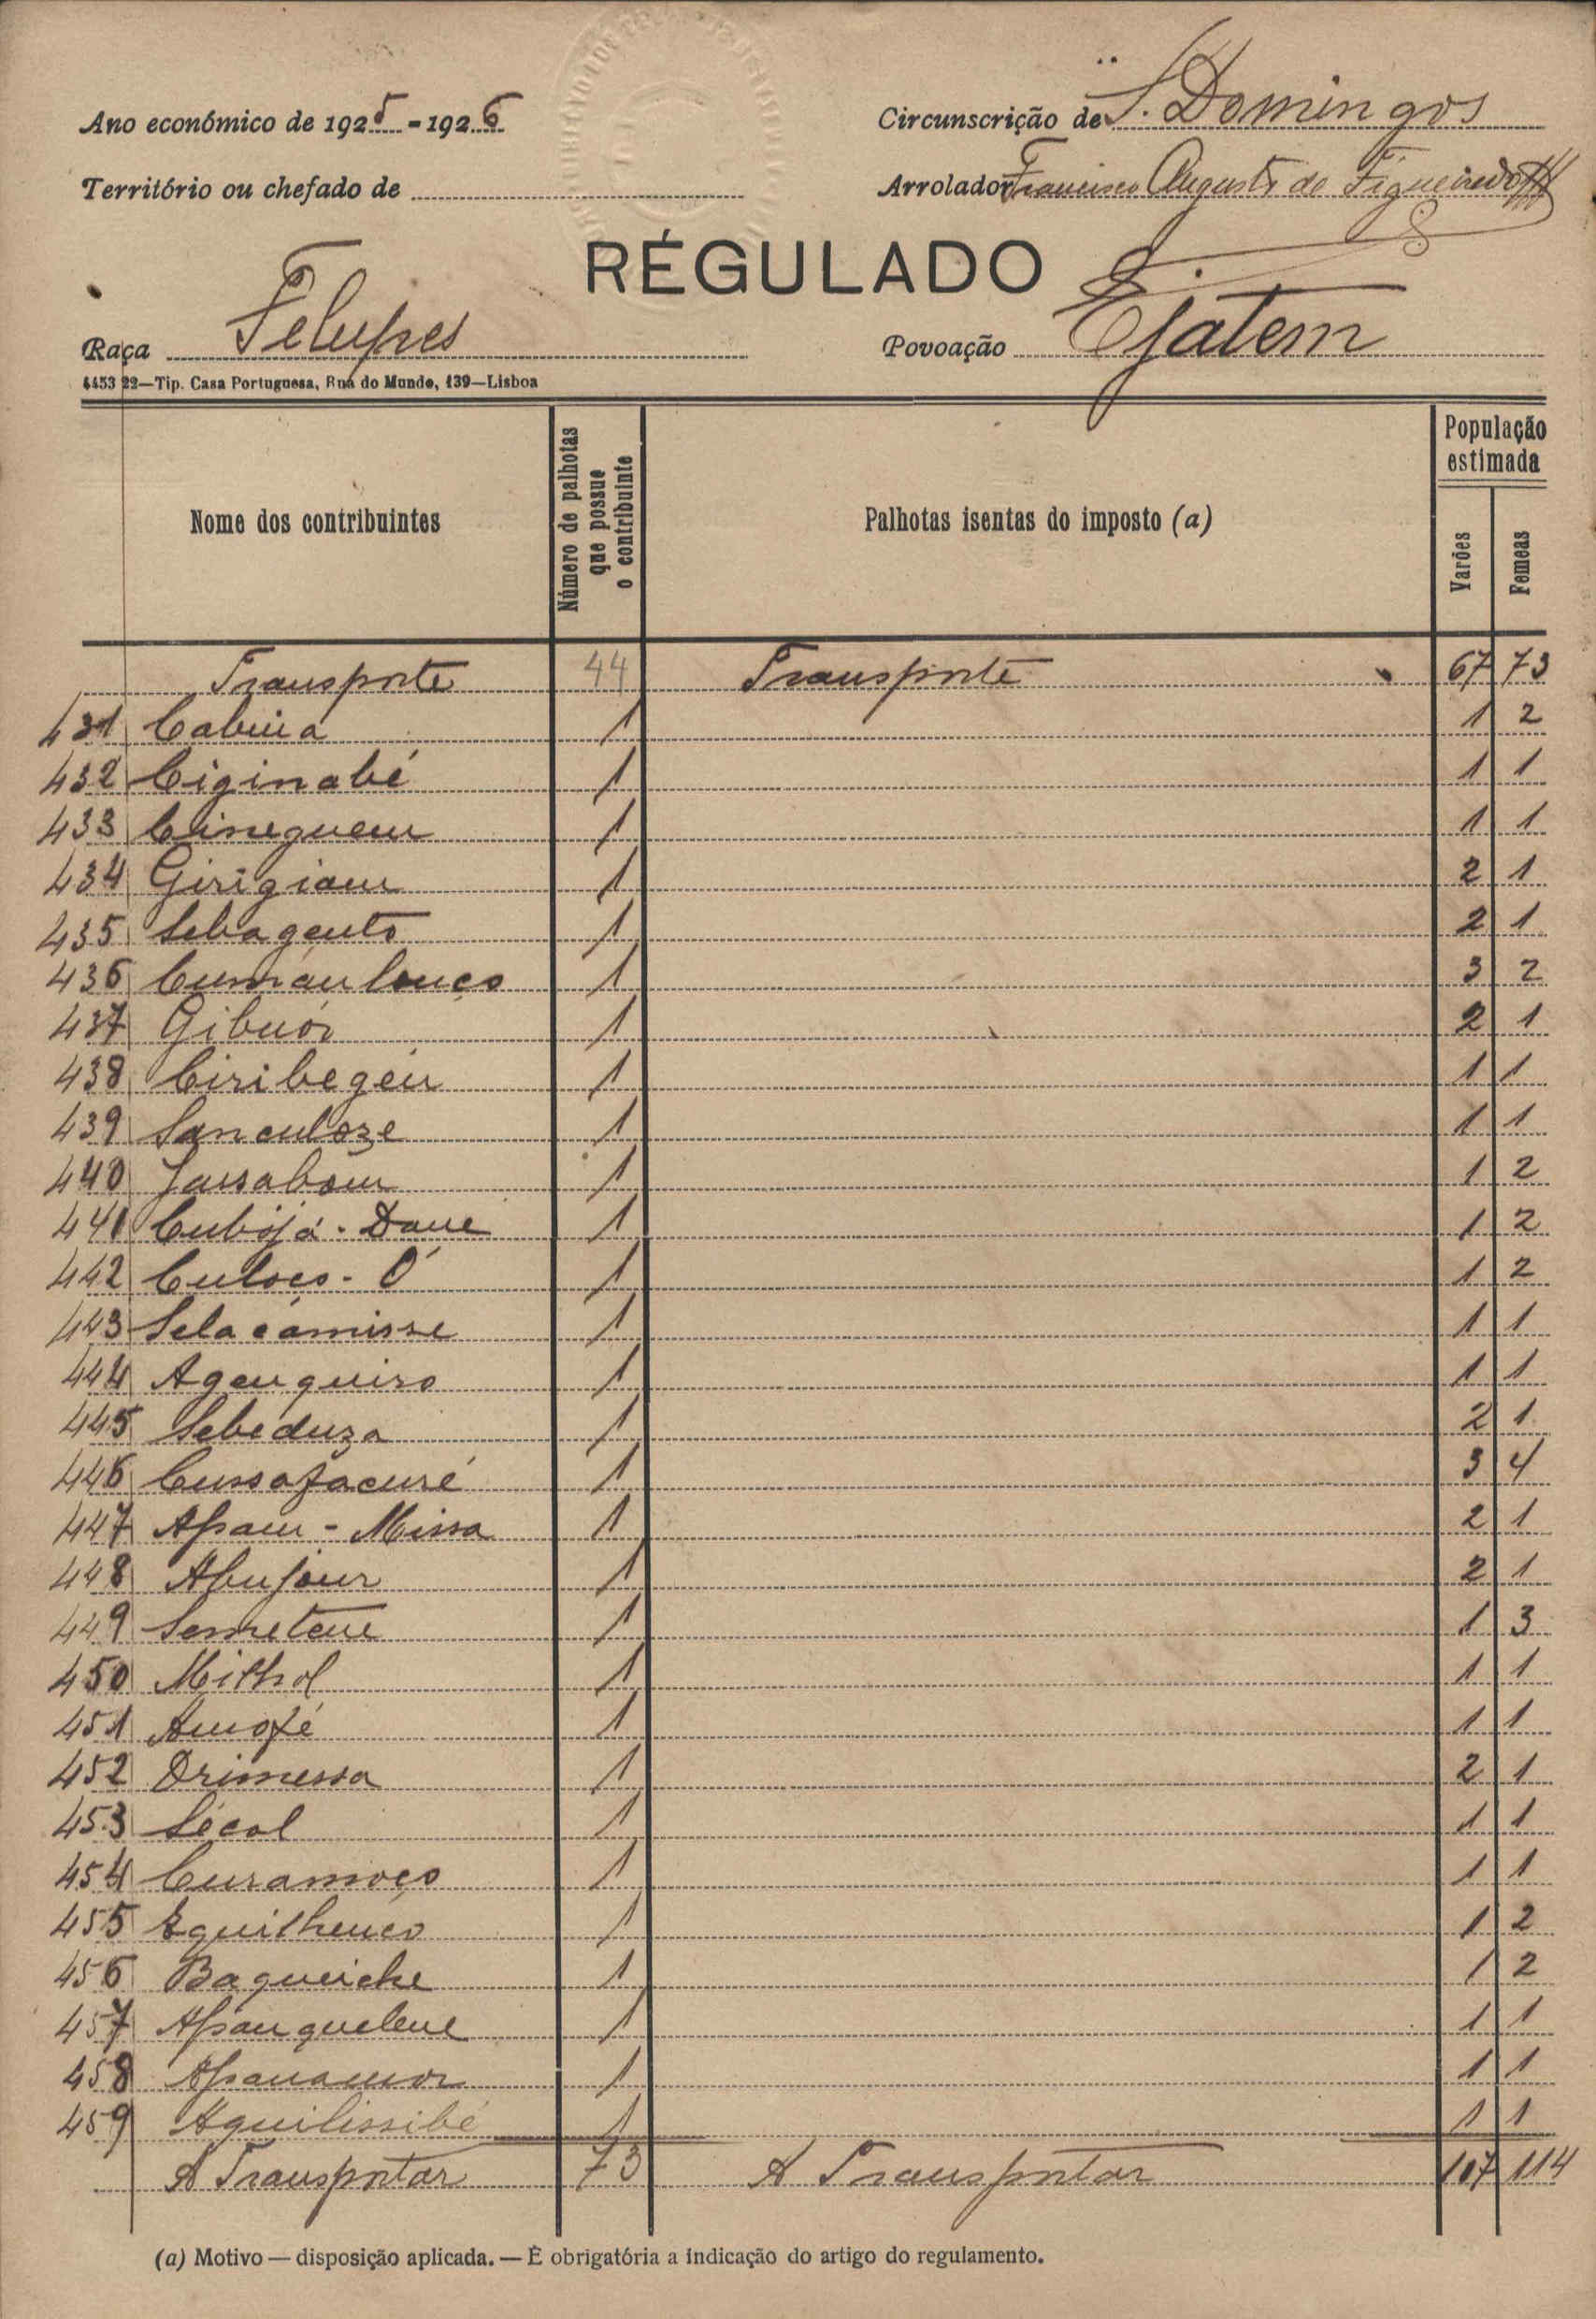 Ano económico de 1925-1926
Circunscrição de S. Domingos
Território ou chefado de
Arrolador Francisco Augusto de Figueiredo
RÉGULADO
Raça Felupes
Povoação Ejatem
4453 22—Tip. Casa Portuguesa, Rua do Mundo, 139—Lisboa
Nome dos contribuintes Número de palhotas que possue o contribuinte Palhotas isentas do imposto (a) População estimada Varões Femeas
Transporte 44 Transporte 67 73
431 1 1 2
432 Ciginabé 1 1 1
433 1 1 1
434 Girigiam 1 2 1
435 Sebagento 1 2 1
436 1 3 2
437 Gibuór 1 2 1
438 Ciribegéu 1 1 1
439 Sanculoze 1 1 1
440 Jassabom 1 1 2
441 1 1 2
442 1 1 2
443 Selacámisse 1 1 1
444 Agenquiro 1 1 1
445 Sebeduza 1 2 1
446 Cussafacuré 1 3 4
447 Apam - Missa 1 2 1
448 1 2 1
449 1 1 3
450 1 1 1
451 1 1 1
452 Drimessa 1 2 1
453 Sécol 1 1 1
454 Curamoço 1 1 1
455 1 1 2
456 Baqueiche 1 1 2
457 1 1 1
458 1 1 1
459 Aquilissibé 1 1 1
A Transportar 73 A Transportar 107 114
(a) Motivo — disposição aplicada. — É obrigatória a indicação do artigo do regulamento.